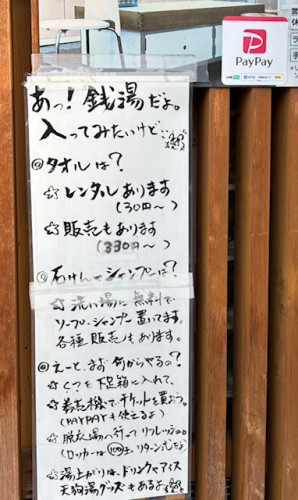 PayPay
あっ！銭湯だよ。
入ってみたいけど
◎タオルは？
☆レンタルあります
(30円〜)
☆販売もあります
(330円〜)
◎石けんやシャンプーは？
☆洗い場に無料で
ソープ・シャンプー置いてます。
各種販売もあります。
◎えーと、まず何からやるの？
☆くつを下足箱に入れて、
☆券売機でチケットを買う。
(PAYPAYも使えるよ)
☆脱衣場へ行ってリフレッシュ。
(ロッカーは100玉、リターン式だよ)
☆湯上がりは、ドリンクやアイス
天狗湯グッズもあるよ